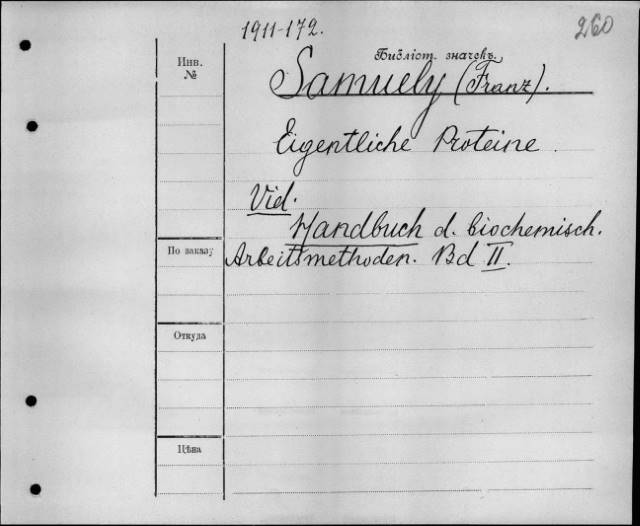 1911-172.
260
Инв.
№
Библіот. значекъ.
Samuely (Franz).
Eigentliche Proteine.
Vid.
Handbuch d. biochemisch.
По заказу
Arbeitsmethoden. Bd II.
Откуда
Цѣна